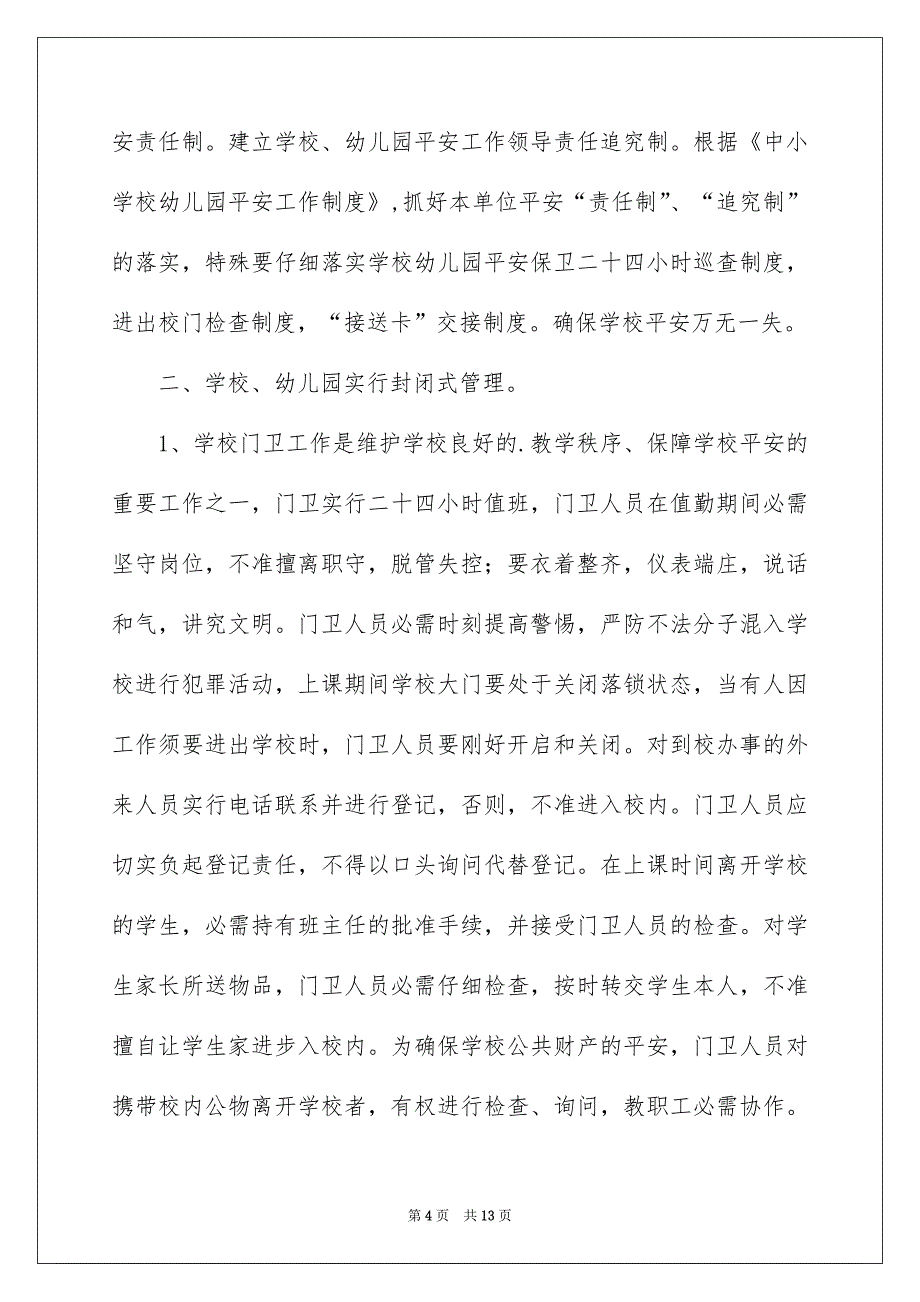 安责任制。建立学校、幼儿园平安工作领导责任追究制。根据《中小
学校幼儿园平安工作制度》,抓好本单位平安“责任制”、“追究制”
的落实，特殊要仔细落实学校幼儿园平安保卫二十四小时巡查制度，
进出校门检查制度，“接送卡”交接制度。确保学校平安万无一失。
二、学校、幼儿园实行封闭式管理。
1、学校门卫工作是维护学校良好的.教学秩序、保障学校平安的
重要工作之一，门卫实行二十四小时值班，门卫人员在值勤期间必需
坚守岗位，不准擅离职守，脱管失控；要衣着整齐，仪表端庄，说话
和气，讲究文明。门卫人员必需时刻提高警惕，严防不法分子混入学
校进行犯罪活动，上课期间学校大门要处于关闭落锁状态，当有人因
工作须要进出学校时，门卫人员要刚好开启和关闭。对到校办事的外
来人员实行电话联系并进行登记，否则，不准进入校内。门卫人员应
切实负起登记责任，不得以口头询问代替登记。在上课时间离开学校
的学生，必需持有班主任的批准手续，并接受门卫人员的检查。对学
生家长所送物品，门卫人员必需仔细检查，按时转交学生本人，不准
擅自让学生家进步入校内。为确保学校公共财产的平安，门卫人员对
携带校内公物离开学校者，有权进行检查、询问，教职工必需协作。
第 4 页 共 13 页